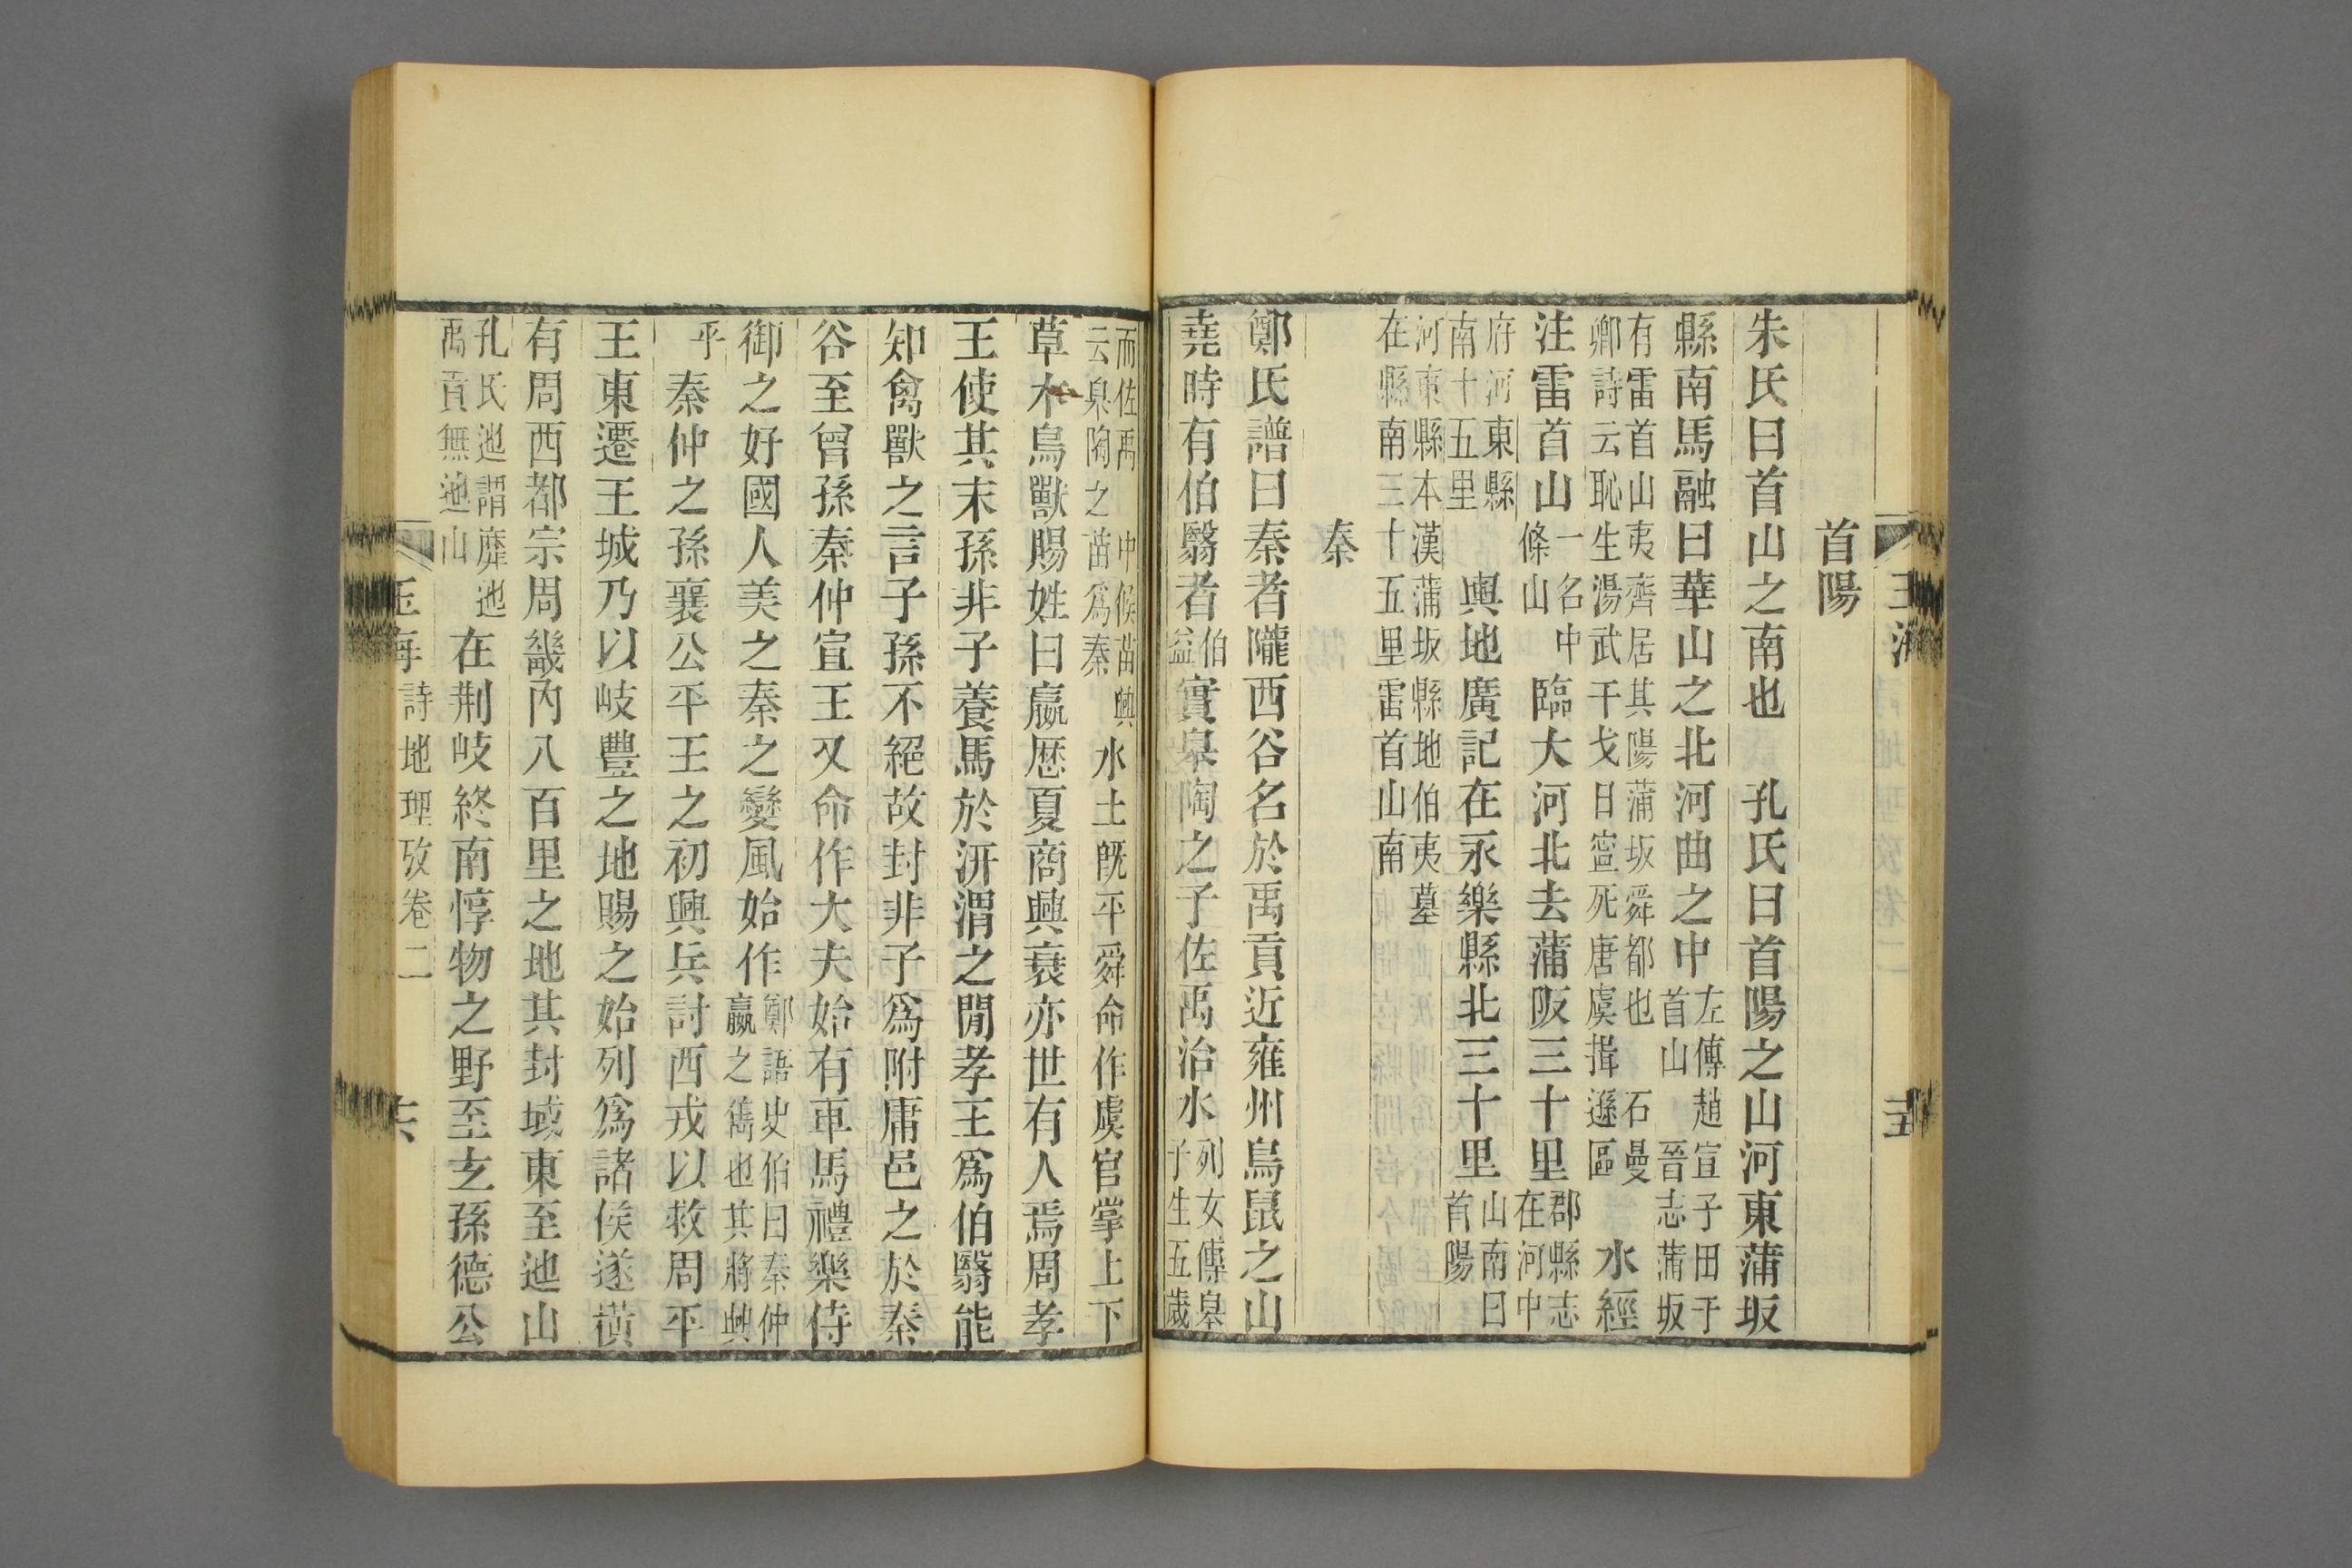 首陽
朱氏曰首山之南也　孔氏曰首陽之山河東蒲坂
縣南馬融曰華山之北河曲之中左傳趙宣子田于首山　晉志蒲坂
有雷首山夷齊居其陽蒲坂舜都也　石曼卿詩云恥生湯武干戈日寧死唐虞揖遜區　水經
注雷首山一名中條山臨大河北去蒲阪三十里郡縣志在河中
府河東縣南十五里　輿地廣記在永樂縣北三十里山南曰首陽
河東縣本漢蒲坂縣地伯夷墓在縣南三十五里雷首山南
秦
鄭氏譜曰秦者隴西谷名於禹貢近雍州鳥鼠之山
堯時有伯翳者伯益實皋陶之子佐禹治水列女傳皋子生五歲
而佐禹　中候苗興云皋陶之苗為秦水土既平舜命作虞官掌上下
草木鳥獸賜姓曰嬴歷夏商興衰亦世有人焉周孝
王使其末孫非子養馬於汧渭之閒孝王爲伯翳能
知禽獸之言子孫不絕故封非子爲附庸邑之於秦
谷至曾孫秦仲宣王又命作大夫始有車馬禮樂侍
御之好國人美之秦之變風始作鄭語史伯曰秦仲嬴之雋也其將興
乎　秦仲之孫襄公平王之初興兵討西戎以救周平
王東遷王城乃以岐豐之地賜之始列爲諸侯遂橫
有周西都宗周畿內八百里之地其封域東至迆山
孔氏迆謂靡迆禹貢無迆山在荆岐終南惇物之野至玄孫德公
玉海　詩地理攷卷二　六